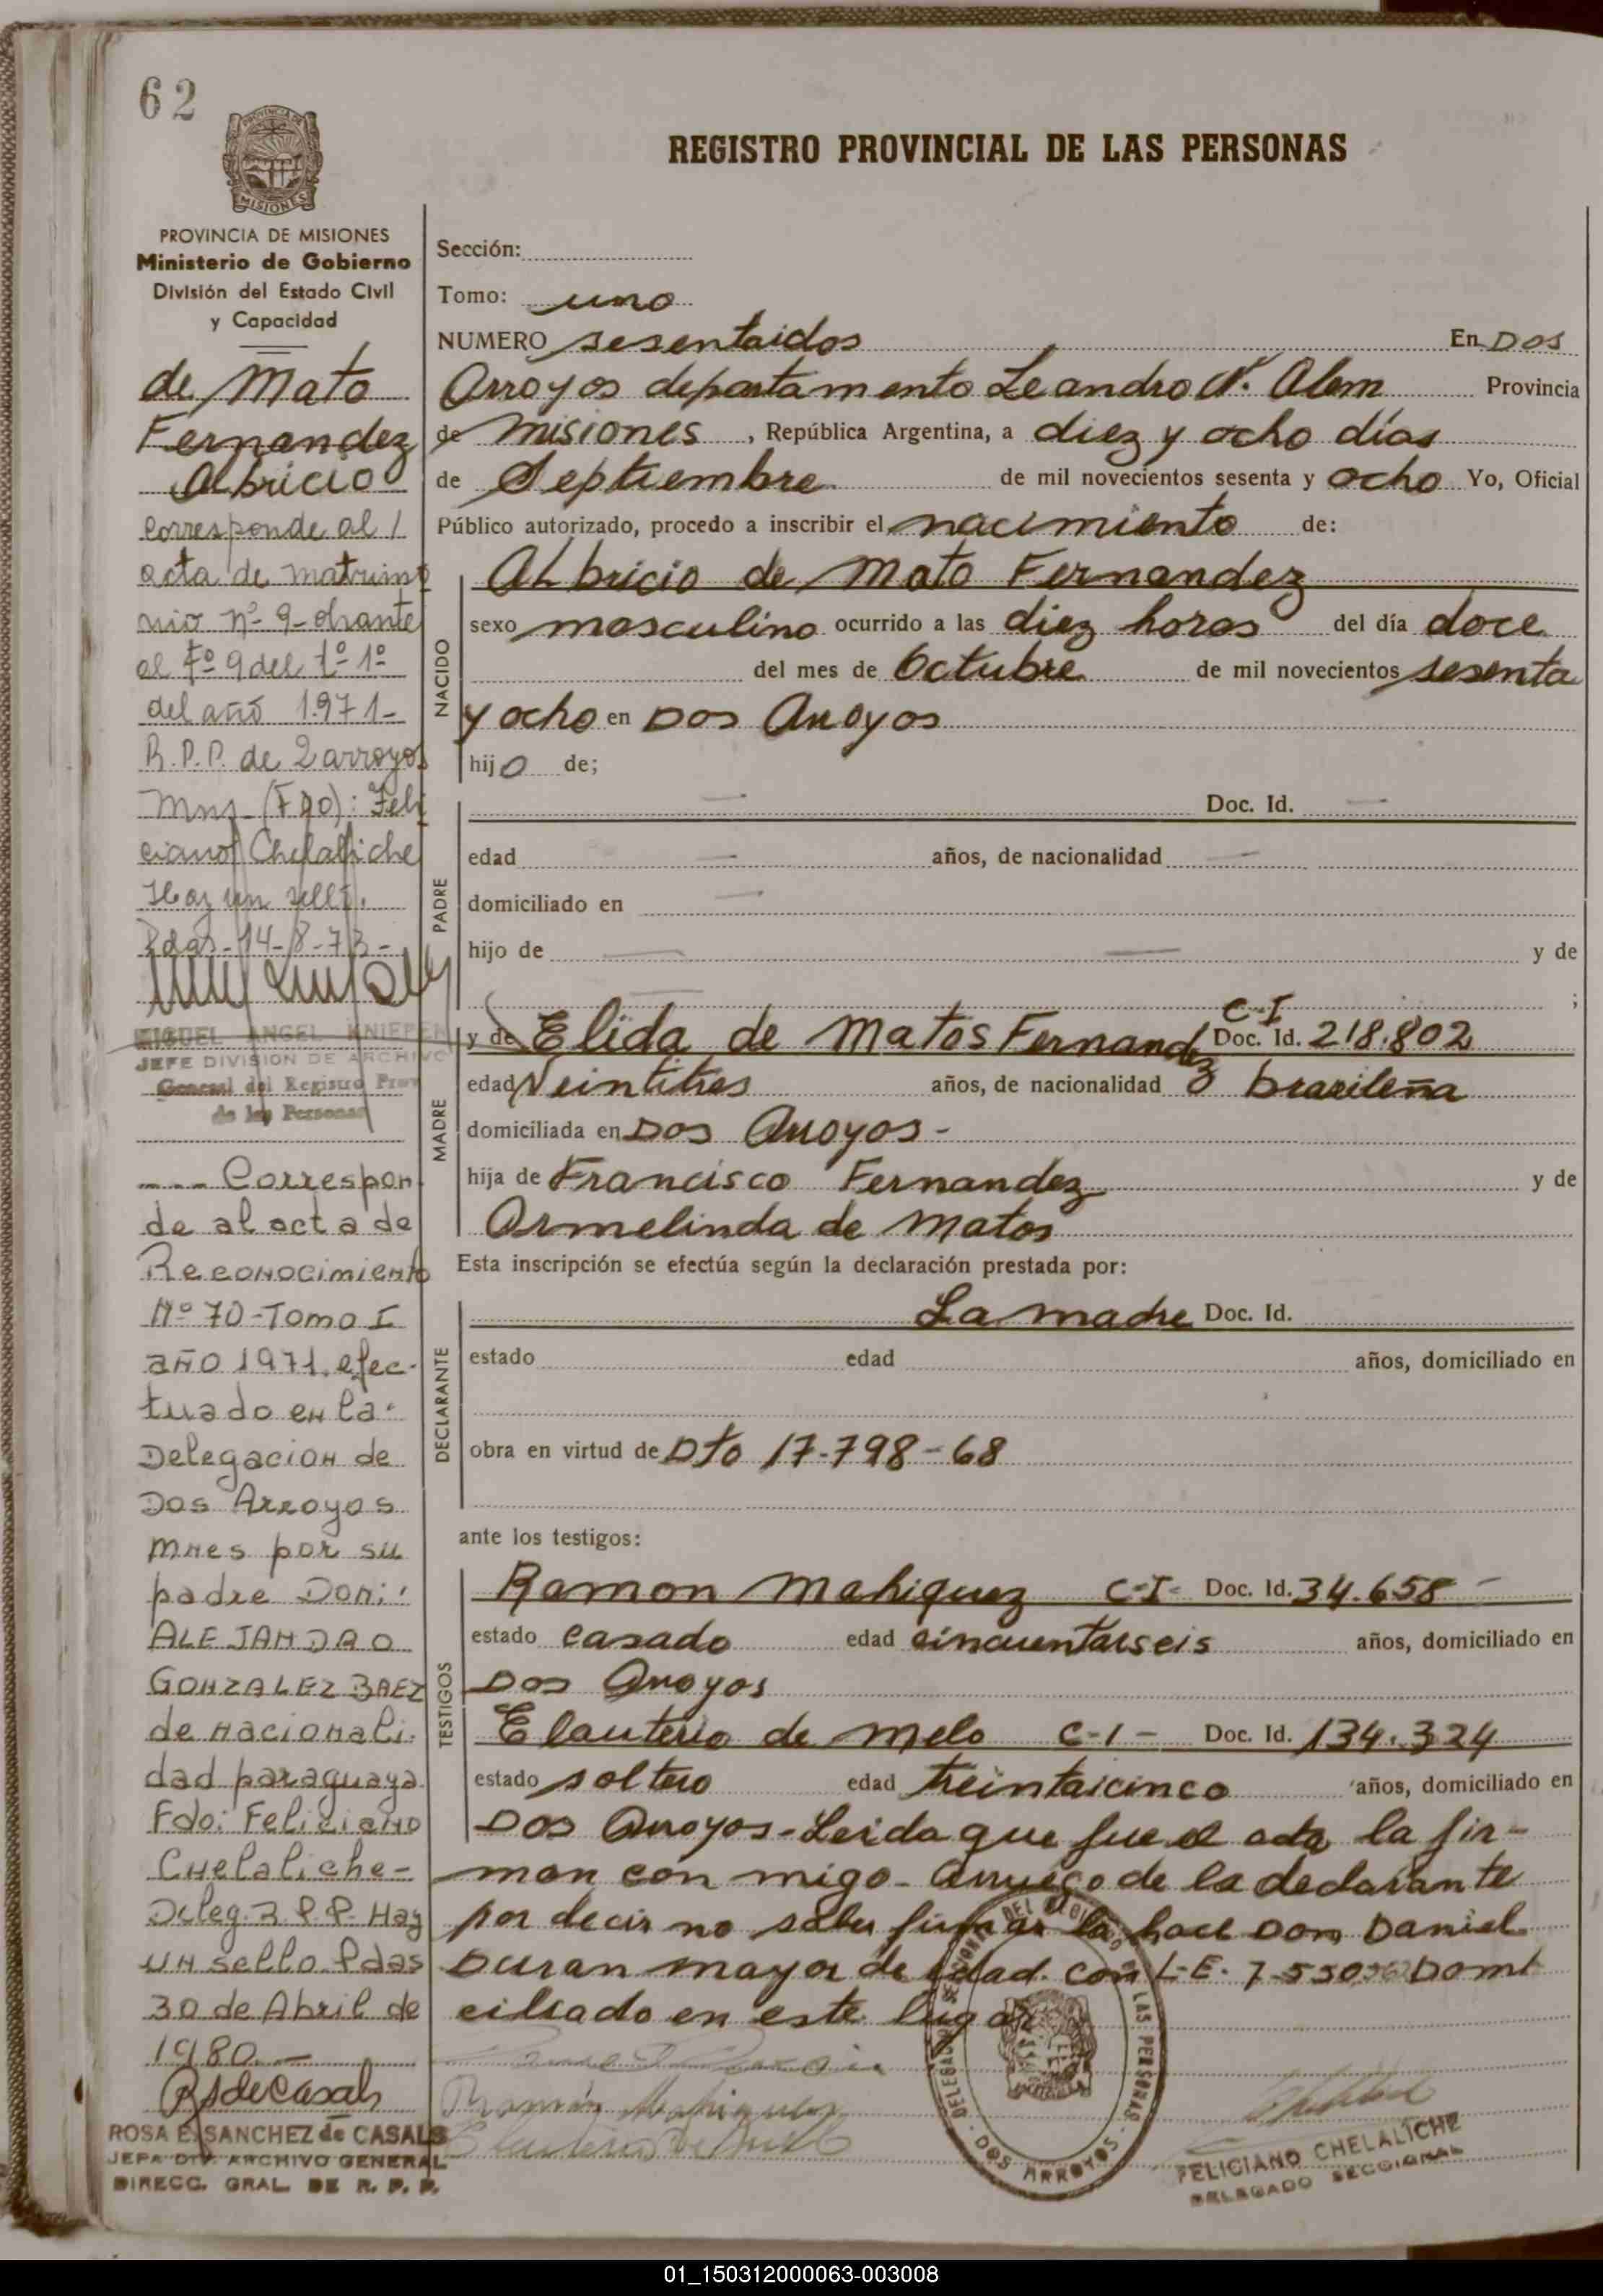 62
PROVINCIA DE
MISIONES
REGISTRO PROVINCIAL DE LAS PERSONAS
PROVINCIA DE MISIONES
Ministerio de Gobierno
División del Estado Civil
y Capacidad
de Mato
Fernandez
Albricio
Corresponde al /
acta de matrimo
nio nº 9- obrante
al Fº 9 del tº 1º
del año 1.971-
R.P.P. de 2 arroyos
Mns- (Fdo): Feli
ciano Chelaliche
Hay un sello.
Pdas-14-8-73-
MIGUEL ANGEL KNIEPER
JEFE DIVISION DE ARCHIVO
General del Registro Prov
de las Personas
---- Correspon
de al acta de
Reconocimiento
Nº 70-Tomo I
año 1971. efec-
tuado en la
Delegacion de
Dos Arroyos
Mnes por su
padre Don:
ALEJANDRO
GONZALEZ BAEZ
de nacionali-
dad paraguaya
Fdo: Feliciano
Chelaliche-
Deleg. R P.P. Hay
un sello Pdas
30 de Abril de
1980.-
RSdeCasals
ROSA E. SANCHEZ de CASALS
JEFA DIV. ARCHIVO GENERAL
DIRECC. GRAL. DE R. P. P.
Sección:
Tomo: uno
NUMERO sesentaidos En Dos
Arroyos departamento Leandro N. Alem Provincia
de Misiones, República Argentina, a diez y ocho días
de Septiembre de mil novecientos sesenta y ocho Yo, Oficial
Público autorizado, procedo a inscribir el nacimiento de:
NACIDO
Albricio de Mato Fernandez
sexo masculino ocurrido a las diez horas del día doce
del mes de Octubre de mil novecientos sesenta
y ocho en Dos Arroyos
hijo de;
PADRE
Doc. Id.
edad años, de nacionalidad
domiciliado en
hijo de y de
;
MADRE
y de Elida de Matos Fernandez C-I Doc. Id. 218.802
edad Veintitres años, de nacionalidad brasileña
domiciliada en Dos Arroyos-
hija de Francisco Fernandez y de
Ormelinda de Matos
Esta inscripción se efectúa según la declaración prestada por:
DECLARANTE
La madre Doc. Id.
estado edad años, domiciliado en
obra en virtud de Dto 17-798-68
ante los testigos:
TESTIGOS
Ramon Mahiquez C-I- Doc. Id. 34.658-
estado casado edad cincuentaiseis años, domiciliado en
Dos Arroyos
Elauterio de Melo C-I- Doc. Id. 134.324
estado soltero edad treintaicinco años, domiciliado en
Dos Arroyos-Leida que fue el acta la fir-
man con migo- Arruego de la declarante
por decir no saber firmar lo hace Don Daniel
Duran mayor de edad con L-E- Domi
ciliado en este lugar
Ramón Mahiquez
DOS ARROYOS
FELICIANO CHELALICHE
DELEGADO SECCIONAL
01_150312000063-003008